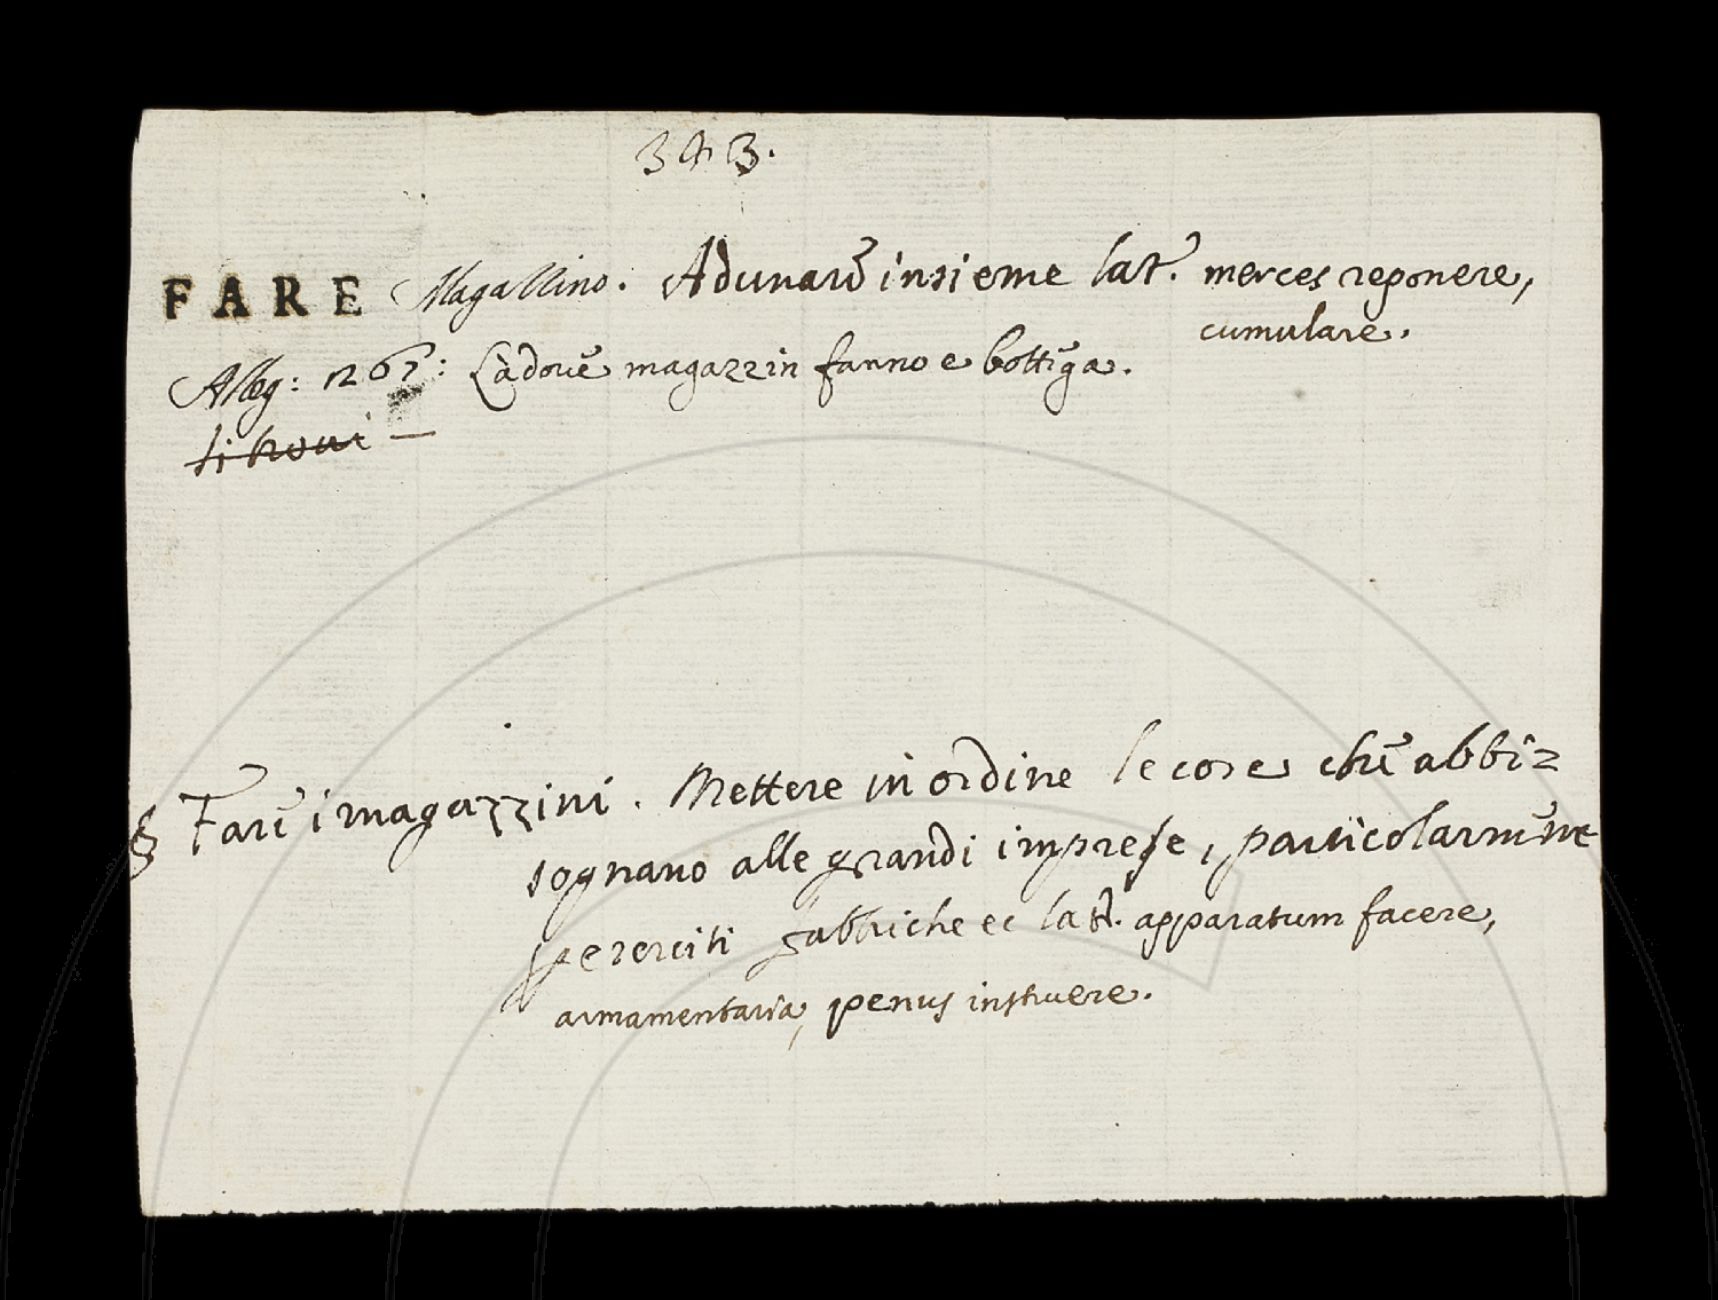 343.
FARE Magazzino. Adunare insieme lat. merces reponere,
cumulare.
Alleg: 267: Làdove magazzin fanno e bottega.
si trovi —
§ Fare i magazzini. Mettere in ordine le cose che abbi=
sognano alle grandi imprese, particolarmente
eserciti fabbriche ec lat. apparatum facere,
armamentaria, penus instruere.